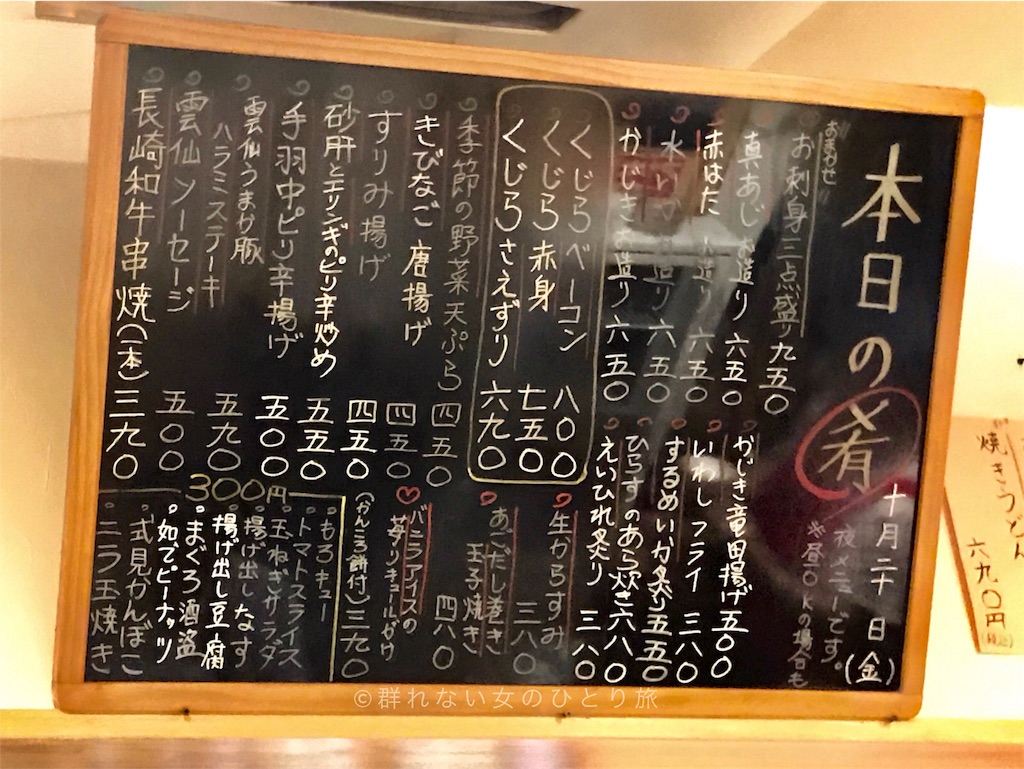 本日の肴
十月二十日(金)
夜メニューです。
※昼OKの場合も
おまかせ
お刺身三点盛り 九五〇
真あじお造り 六五〇
赤はた お造り 六五〇
水いか お造り 六五〇
かじき お造り 六五〇
くじらベーコン 八〇〇
くじら赤身 七五〇
くじらさえずり 六九〇
季節の野菜天ぷら 四五〇
きびなご 唐揚げ 四五〇
すりみ揚げ 四五〇
砂肝とエリンギのピリ辛炒め 五五〇
手羽中ピリ辛揚げ 五〇〇
雲仙うまか豚
ハラミステーキ 五九〇
雲仙ソーセージ 五〇〇
長崎和牛串焼(一本) 三九〇
かじき竜田揚げ 五〇〇
いわしフライ 三八〇
するめいか炙り 五五〇
ひらすのあら炊き 六八〇
えいひれ炙り 三八〇
生からすみ 三八〇
あごだし巻き
玉子焼き 四八〇
バニラアイスの
苺リキュールがけ
(かんころ餅付) 三九〇
300円
もろキュー
トマトスライス
玉ねぎサラダ
揚げ出しなす
揚げ出し豆腐
まぐろ酒盗
ゆでピーナッツ
式見かんぼこ
ニラ玉焼き
焼きうどん
六九〇円
(税込)
©群れない女のひとり旅